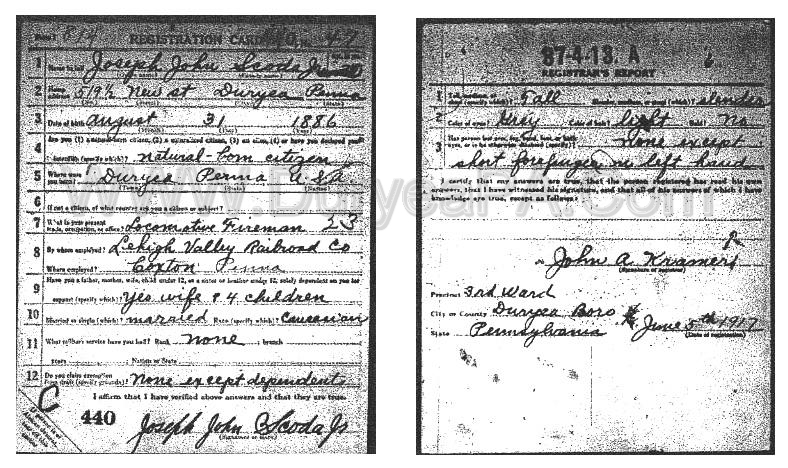 Form 814 REGISTRATION CARD No. 47
1 Name in full Joseph John Scoda Jr
2 Home address 519½ New st Duryea Penna
3 Date of birth August 31 1886
4 Are you (1) a natural-born citizen, (2) a naturalized citizen, (3) an alien, (4) or have you declared your
intention (specify which)? natural-born citizen
5 Where were you born? Duryea Penna U.S.A
6 If not a citizen, of what country are you a citizen or subject?
7 What is your present trade, occupation, or office? Locomotive Fireman 23
8 By whom employed? Lehigh Valley Railroad Co
Where employed? Coxton Penna
9 Have you a father, mother, wife, child under 12, or a sister or brother under 12, solely dependent on you for
support (specify which)? Yes wife & 4 children
10 Married or single (which)? married Race (specify which)? Caucasian
11 What military service have you had? Rank none branch
years Nation or State
12 Do you claim exemption from draft (specify grounds)? None except dependents
I affirm that I have verified above answers and that they are true.
440
Joseph John Scoda Jr
(Signature or mark)
37-4-13. A
REGISTRAR'S REPORT
1 Tall, medium, or short (specify which)? Tall Slender, medium, or stout (which)? slender
2 Color of eyes? Grey Color of hair? light Bald? No
3 Has person lost arm, leg, hand, foot, or both eyes, or is he otherwise disabled (specify)? None except
short forefinger on left hand
I certify that my answers are true, that the person registered has read his own
answers, that I have witnessed his signature, and that all of his answers of which I have
knowledge are true, except as follows:
John A Kramer
(Signature of registrar)
Precinct 3rd Ward
City or County Duryea Boro
State Pennsylvania June 5th 1917
(Date of registration)
www.DuryeaPA.com